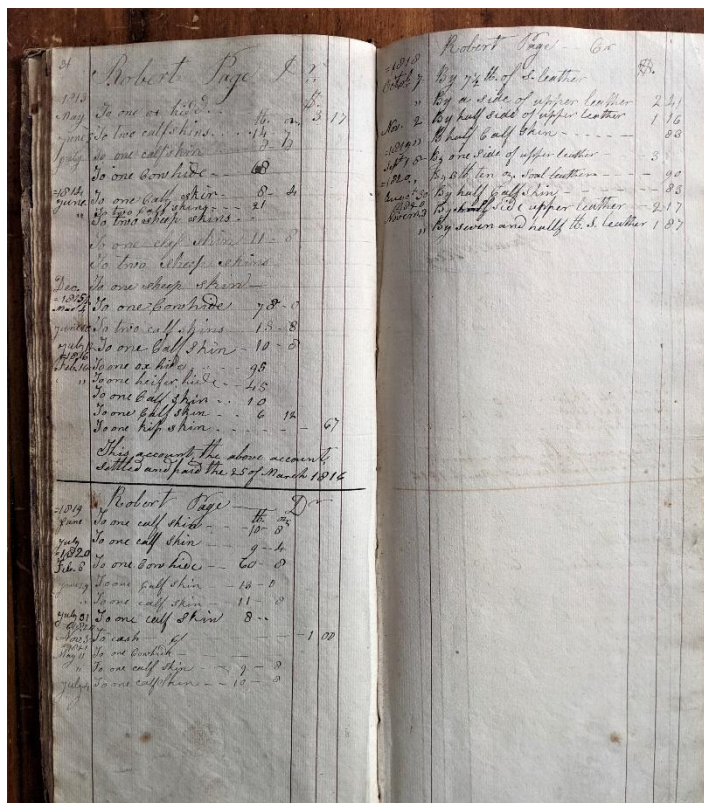 31
Robert Page Dr
=1813 $.
May To one ox hide... 3 17
June To two calf skins... 14 7
July To one calf skin
To one Cowhide — 68
=1814
June To one Calf skin 8 - 4
" To two Calf skins - 21
To two sheep skins
To one calf skin 11 - 8
To two sheep skins
Dec. To one sheep skin —
=1815
To one Cowhide 78 - 0
To two calf skins 13 - 8
July To one Calf skin 10 - 8
=1816
Feb. To one ox hide 95
" To one heifer hide - 45
To one Calf skin - 10
To one Calf skin - 6 12
To one kip skin - 67
This account, the above account
settled and paid the 25 of March 1816
Robert Page Dr
=1819 lb oz
June To one calf skin - 10 - 8
July To one calf skin 9 - 4
=1820
Feb. 5 To one Cowhide - 60 - 8
To one Calf skin - 13 - 0
To one calf skin - 11 - 8
July 31 To one calf skin 8 -
Nov. 3 To cash - 1 00
May 11 To one Cowhide -
" To one calf skin - 9 - 8
July To one calf skin - 10 - 8
Robert Page - Cr
=1818 $.
Octob. 7 By 7½ lb. of s. leather
" By a side of upper leather 2 41
Nov. 2 By half side of upper leather 1 16
half Calf skin - 83
=1819
Sept By one side of upper leather - 3
=1820
By lb ten oz soal leather - 90
August By half Calf skin - 83
1820
Novem. By side upper leather - 2 17
" By seven and half lb. S. leather 1 87